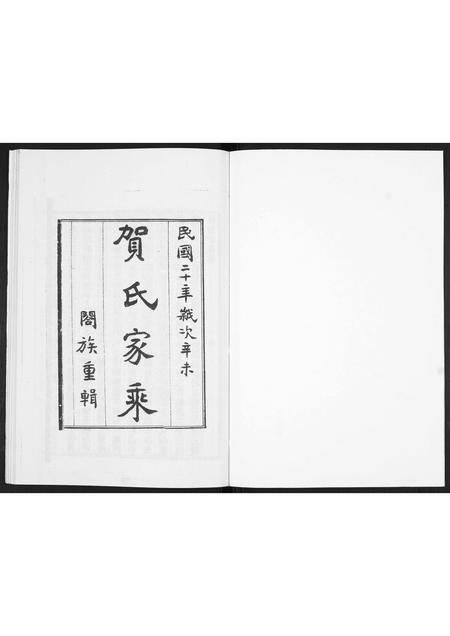 民國二十年歲次辛未
賀氏家乘
閤族重輯